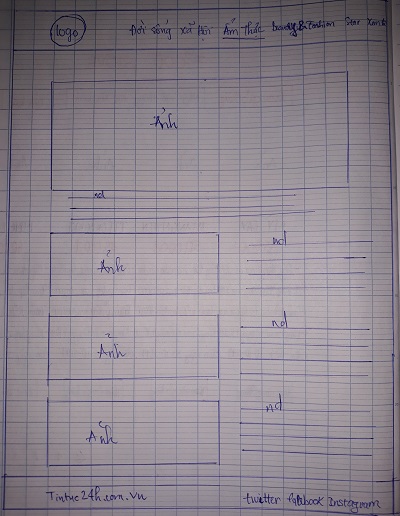 logo Đời sống xã hội Ẩm thực Beauty & Fashion Star
Ảnh
nd
nd
Ảnh
nd
Ảnh
nd
Ảnh
Tintuc24h.com.vn twitter facebook Instagram